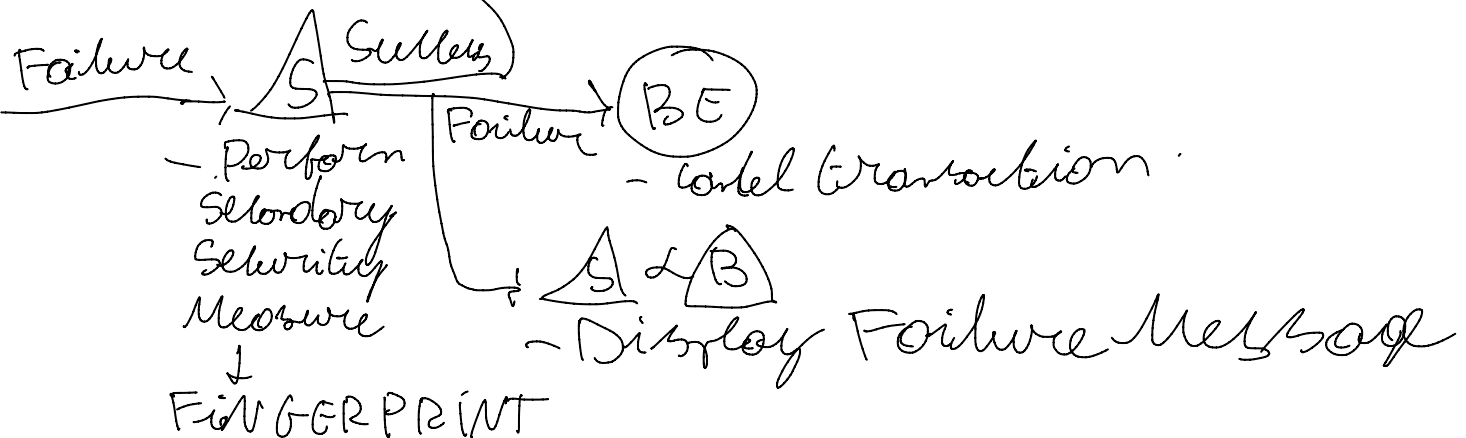 Failure
S
Success
Failure
BE
- Perform
Secondary
Security
Measure
FiNGERPRiNT
- Cancel transaction.
S & B
- Display Failure Message